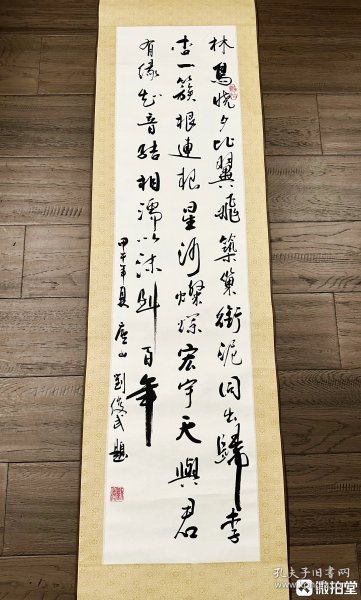 林鸟晓夕比翼飛築巢銜泥同出歸李
杏一簇根連根星河燦爛宏宇天與君
有缘知音结相濡以沫到百年
甲午年夏 庐山 刘俊武 题
孔夫子旧书网
微拍堂